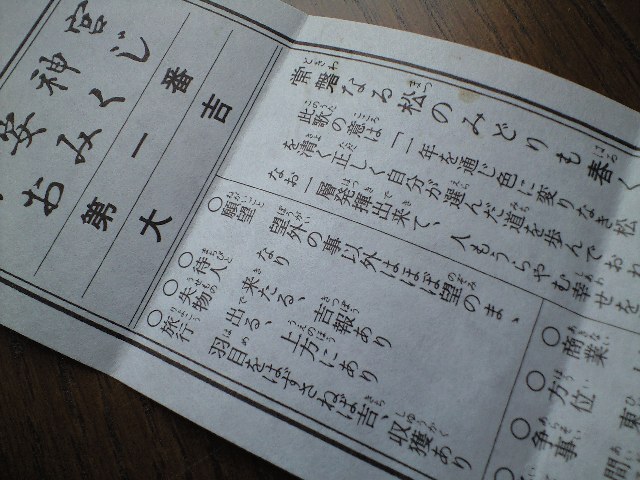 安神宮
おみくじ
第一番
大吉
常磐なる松のみどりも春く
此歌の意は、一年を通じ色に変りなき松
を清く正しく自分が選んだ道を歩んでおれ
なお一層発揮出来て、人もうらやむ幸せを
○願望 望外の事以外はほぼ望のまゝ
なり
○待人 来たる、吉報あり
○失物 出る、上方にあり
○旅行 羽目をはずさねば吉、収穫あり
○商業
○方位 東
○争事 間